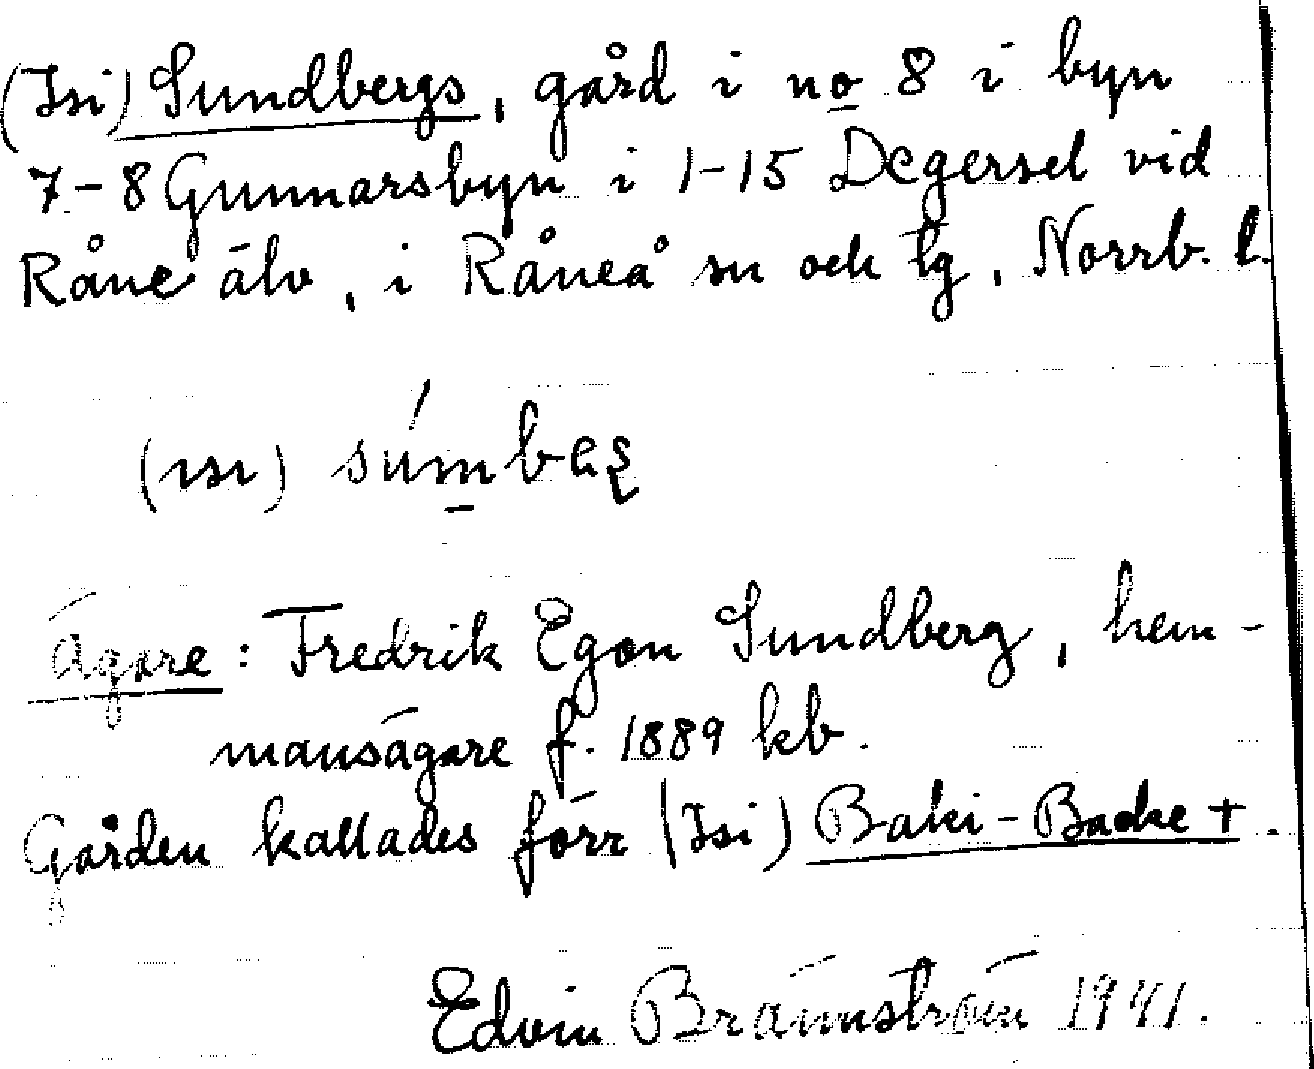 (Isi) Sundbergs, gård i no 8 i byn
7-8 Gunnarsbyn i 1-15 Degersel vid
Råne älv, i Råneå sn och tg, Norrb. l.
(ısı)
Ägare: Fredrik Egon Sundberg, hem-
mansägare f. 1889 kb.
Gården kallades förr (Isi) Baki-Backe +.
Edvin Brännström 1941.